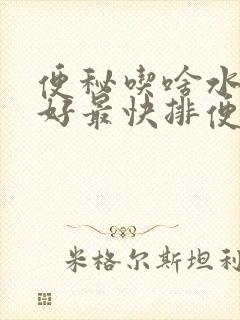 便秘喫啥水
好最快排便
米格尔斯坦利